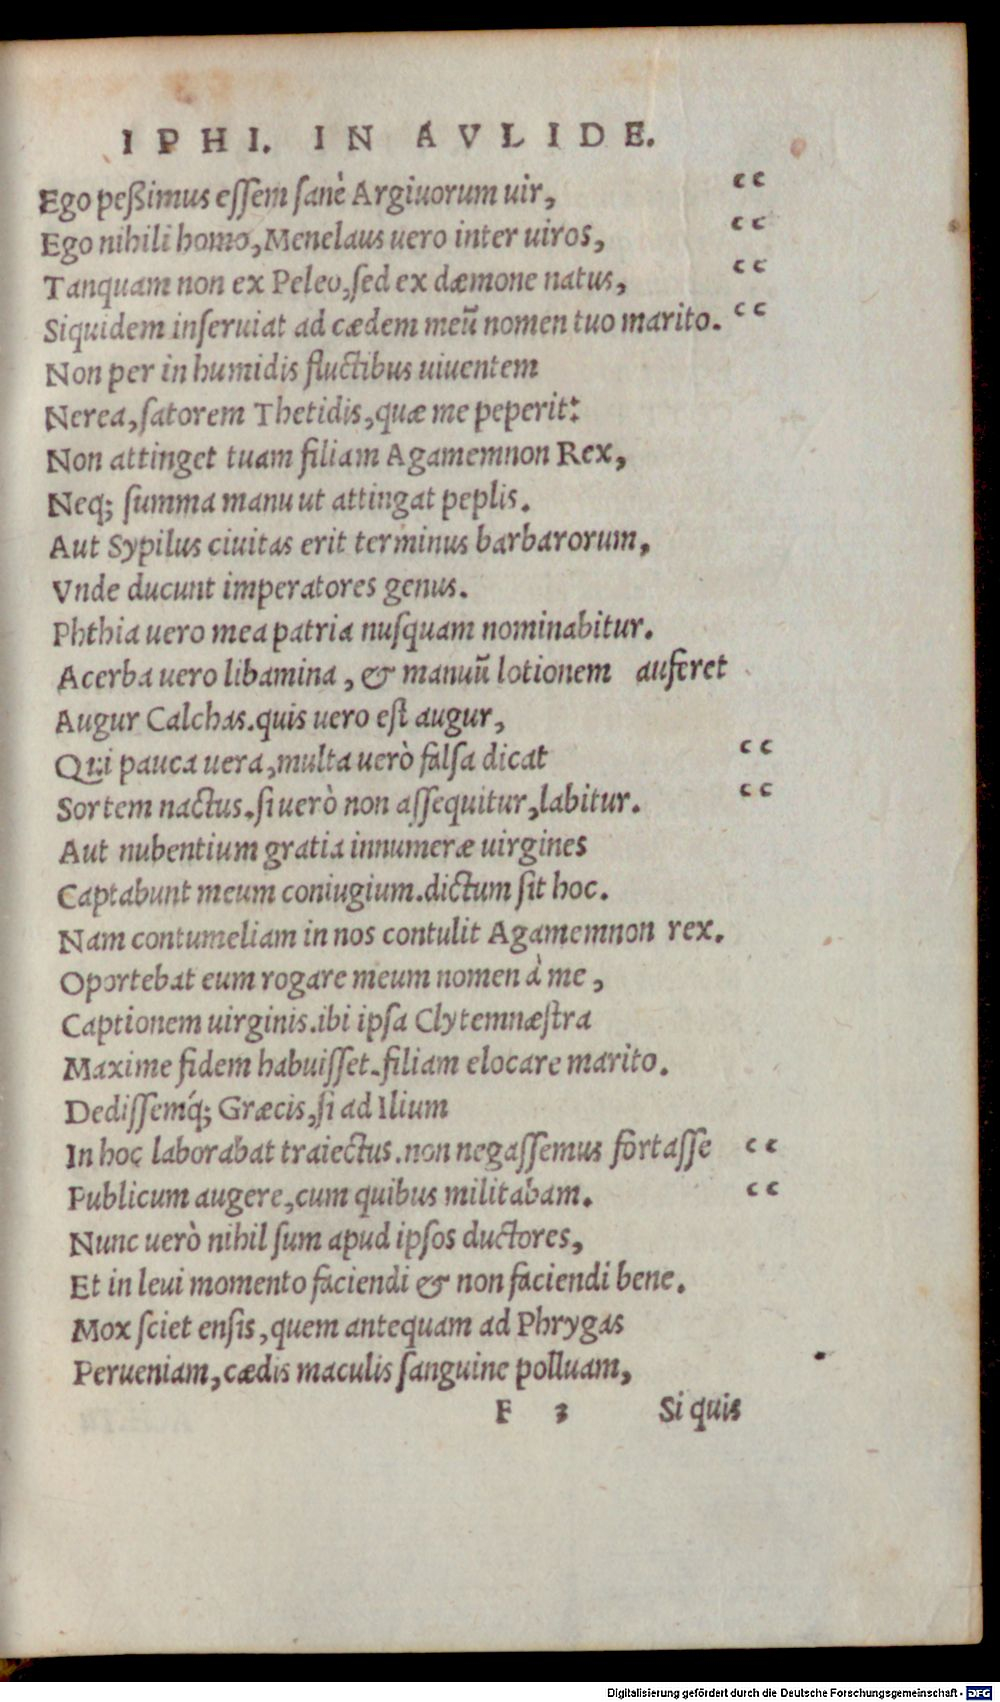 IPHI. IN AVLIDE.
Ego peßimus essem sanè Argiuorum uir, “
Ego nihili homo, Menelaus uero inter uiros, “
Tanquam non ex Peleo, sed ex dæmone natus, “
Siquidem inseruiat ad cædem meũ nomen tuo marito. “
Non per in humidis fluctibus uiuentem
Nerea, satorem Thetidis, quæ me peperit:
Non attinget tuam filiam Agamemnon Rex,
Neq; summa manu ut attingat peplis.
Aut Sypilus ciuitas erit terminus barbarorum,
Vnde ducunt imperatores genus.
Phthia uero mea patria nusquam nominabitur.
Acerba uero libamina, & manuũ lotionem auferet
Augur Calchas. quis uero est augur,
Qui pauca uera, multa uerò falsa dicat “
Sortem nactus. si uerò non assequitur, labitur. “
Aut nubentium gratia innumeræ uirgines
Captabunt meum coniugium. dictum sit hoc.
Nam contumeliam in nos contulit Agamemnon rex.
Oportebat eum rogare meum nomen à me,
Captionem uirginis. ibi ipsa Clytemnæstra
Maxime fidem habuisset. filiam elocare marito.
Dedissemq́; Græcis, si ad Ilium
In hoc laborabat traiectus. non negassemus fortasse “
Publicum augere, cum quibus militabam. “
Nunc uerò nihil sum apud ipsos ductores,
Et in leui momento faciendi & non faciendi bene.
Mox sciet ensis, quem antequam ad Phrygas
Perueniam, cædis maculis sanguine polluam,
F 3 Si quis
Digitalisierung gefördert durch die Deutsche Forschungsgemeinschaft - DFG